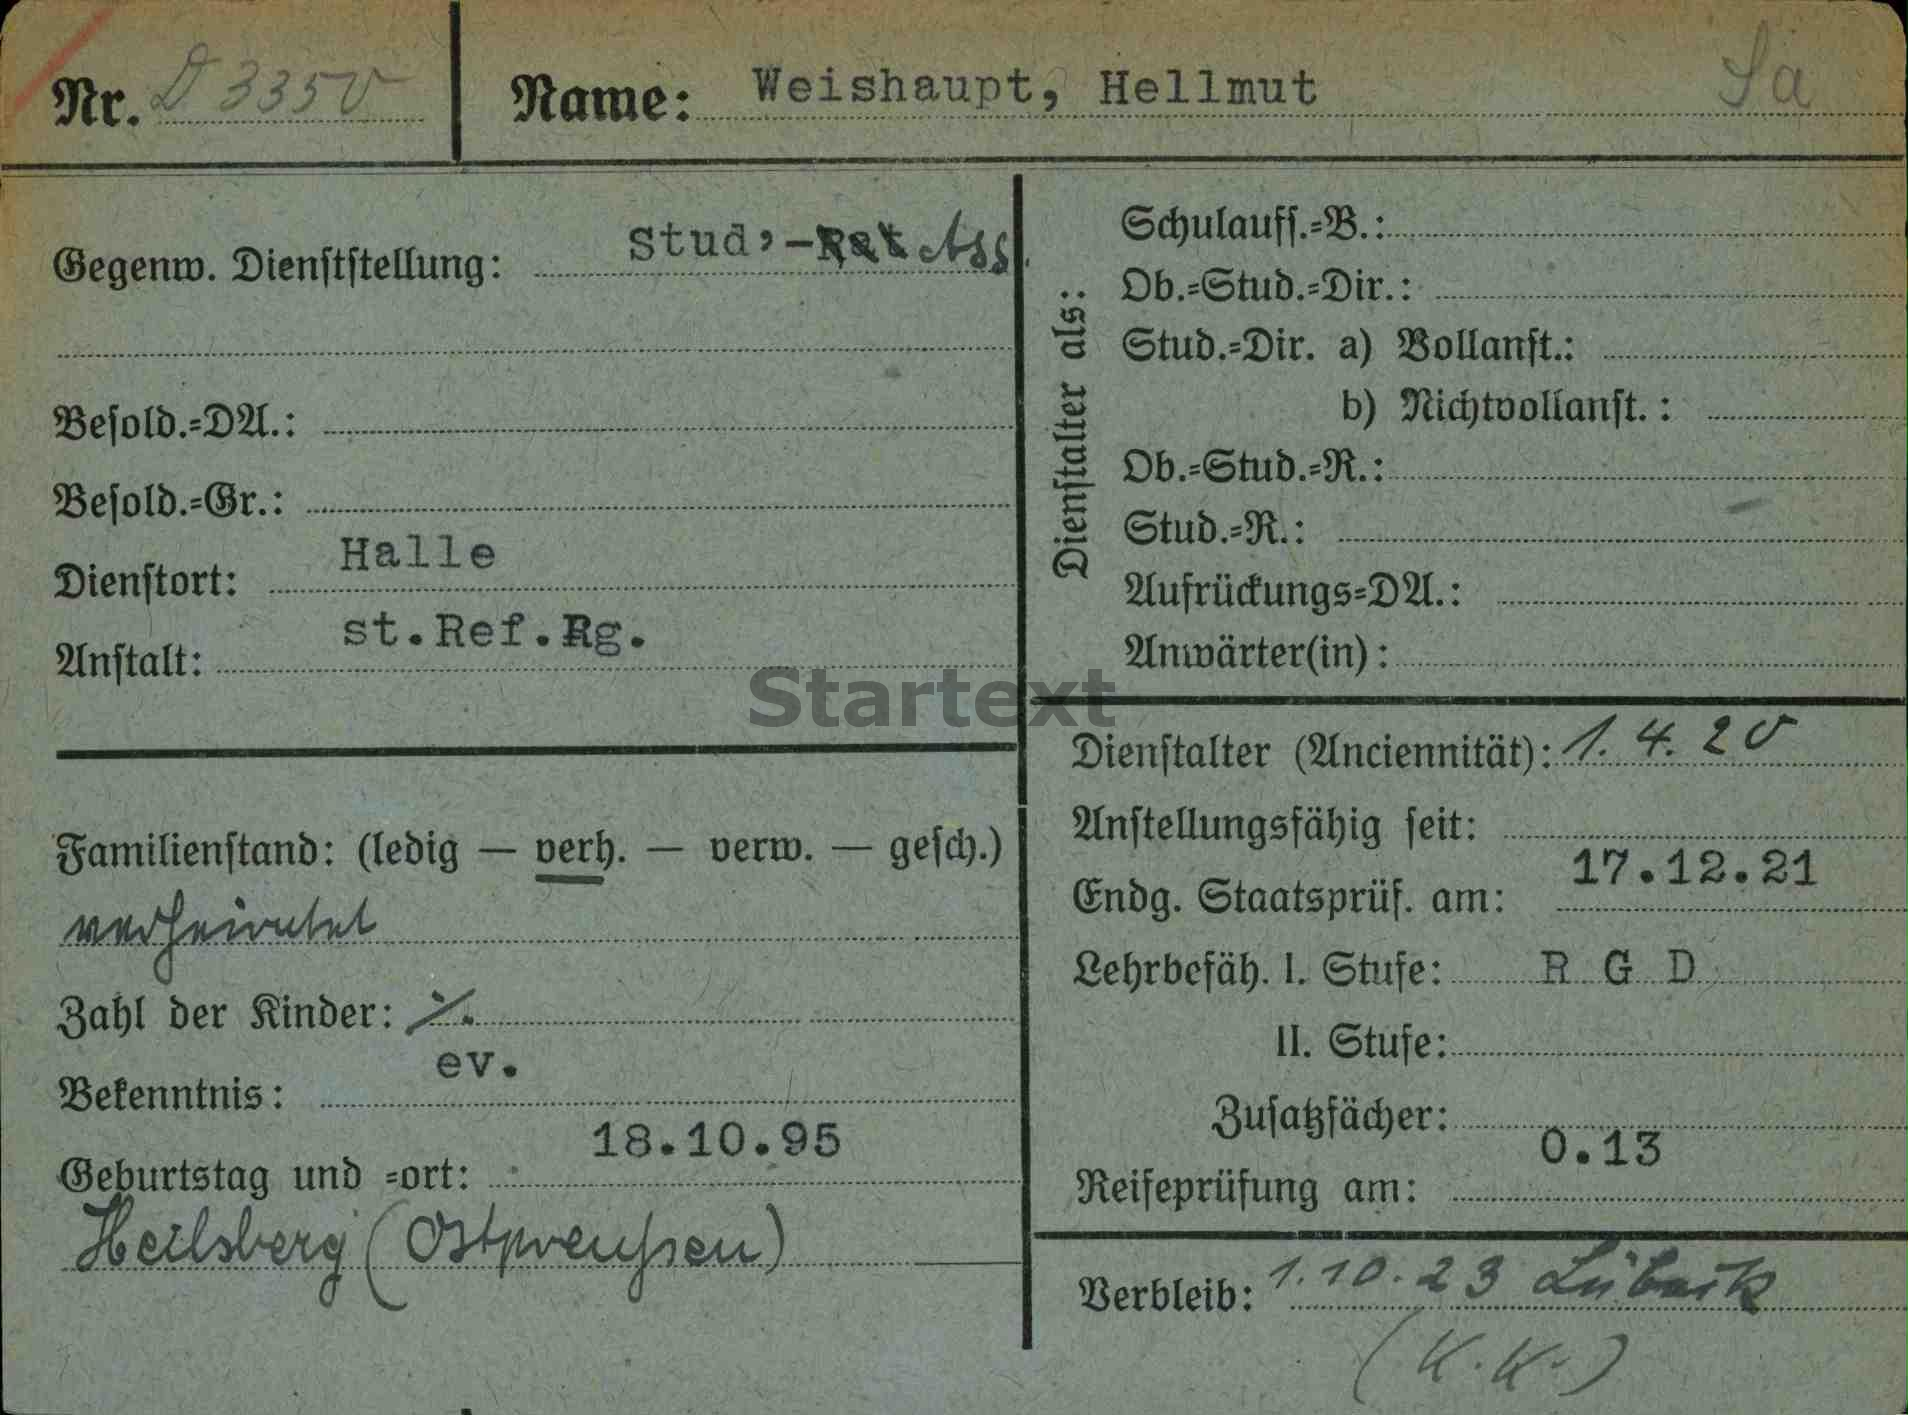 Nr. D 3350
Name: Weishaupt, Hellmut
Sa
Gegenw. Dienststellung: Stud,-Rat Ass.
Besold.=DA.:
Besold.=Gr.:
Dienstort: Halle
Anstalt: st.Ref.Rg.
Familienstand: (ledig — verh. — verw. — gesch.)
verheiratet
Zahl der Kinder: ./.
Bekenntnis: ev.
Geburtstag und =ort: 18.10.95
Heilsberg (Ostpreußen)
Dienstalter als:
Schulauff.=B.:
Ob.=Stud.=Dir.:
Stud.=Dir. a) Vollanst.:
b) Nichtvollanst.:
Ob.=Stud.=R.:
Stud.=R.:
Aufrückungs=DA.:
Anwärter(in):
Startext
Dienstalter (Anciennität): 1. 4. 20
Anstellungsfähig seit:
Endg. Staatsprüf. am: 17.12.21
Lehrbefäh. I. Stufe: R G D
II. Stufe:
Zusatzfächer:
Reifeprüfung am: O.13
Verbleib: 1.10.23 Lübeck
(K.K.)